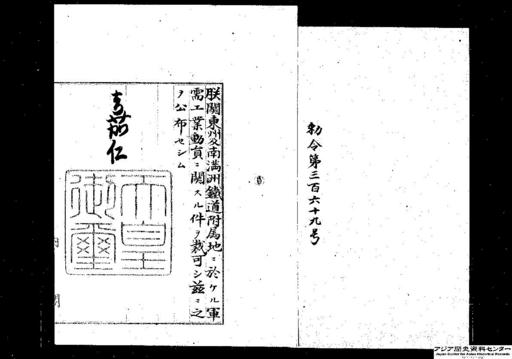 勅令第三百六十九号
朕關東州及南満洲鐵道附属地ニ於ケル軍
需工業動員ニ関スル件ヲ裁可シ茲ニ之
ヲ公布セシム
嘉仁
天皇
御璽
アジア歴史資料センター
Japan Center for Asian Historical Records